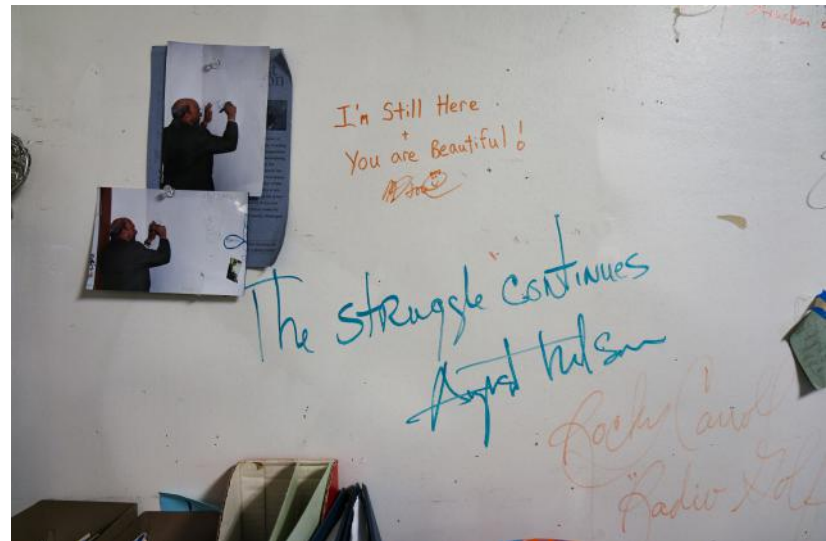 I'm Still Here
+
You are Beautiful!
The Struggle Continues
August Wilson
Rocky Carroll
"Radio Golf